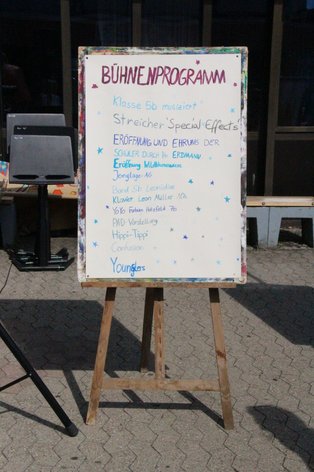 BÜHNENPROGRAMM
Klasse 6b musiziert
Streicher "Special Effects"
ERÖFFNUNG UND EHRUNG DER
SCHÜLER DURCH Dr. ERDMANN
Eröffnung
Jonglage AG
Band St. Leonidas
Klavier Leon Müller 10a
YoYo Fabian Hatzfeld 7b
PND Vorstellung
Hippi-Tippi
Confusion
Youngsters